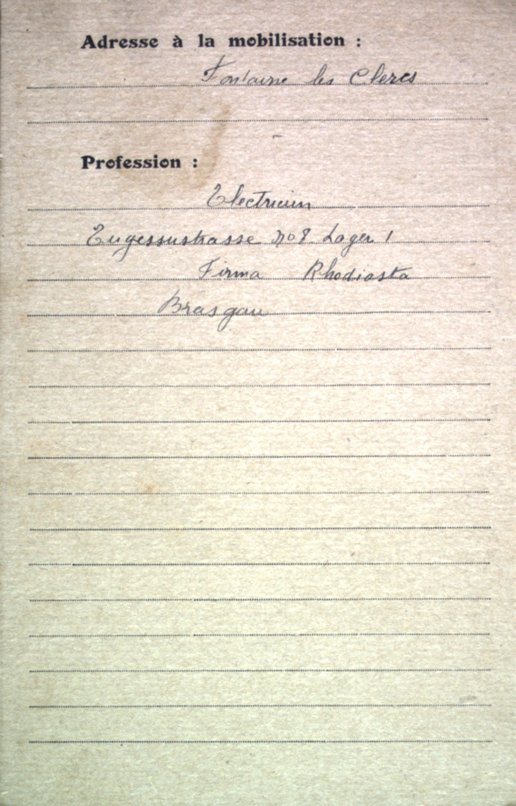 Adresse à la mobilisation :
Fontaine les Clercs
Profession :
Electricien
Lager 1
Firma Rhodiasta
Brasgau